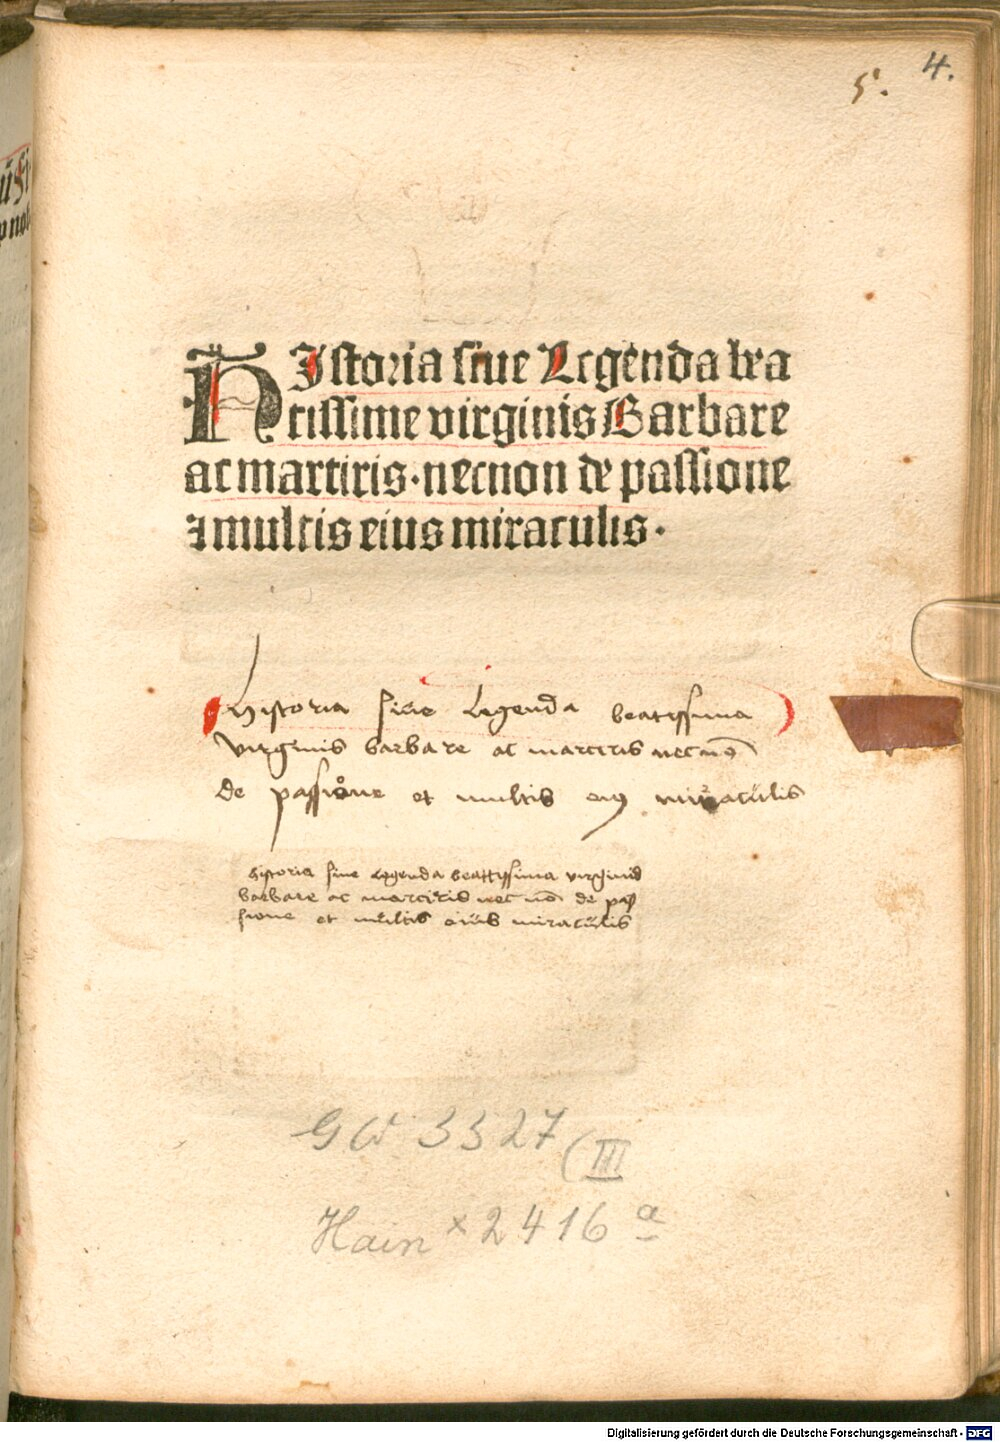 5.
4.
HIstoria siue Legenda bea
tissime virginis Barbare
ac martiris. necnon de passione
⁊ multis eius miraculis.
Historia sive Legenda beatissima
virginis barbare ac martiris necnō
de passione et multis eiꝰ miraculis
historia sive Legenda beattissima virginis
barbare ac martiris nec nō de pas
sione et multis eius miraculis
GW 3327 (III
Hain × 2416 a
Digitalisierung gefördert durch die Deutsche Forschungsgemeinschaft - DFG